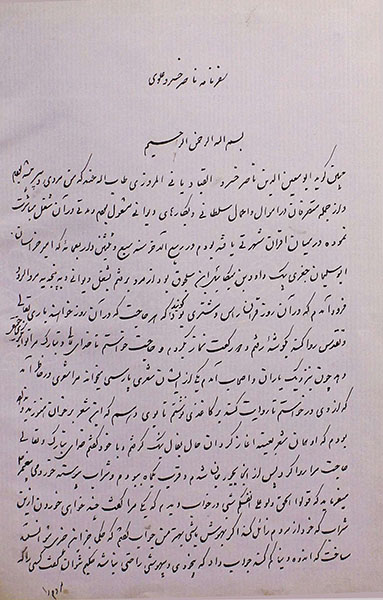 سفرنامه ناصر خسرو علوی
بسم الله الرحمن الرحیم
چنین گوید ابو معین الدین ناصر خسرو القبادیانی المروزی طاب الله که من مردی دبیر پیشه بودم
و از جمله متصرفان در اموال و اعمال سلطانی و بکارهای دیوانی مشغول بودم و مدتی در آن شغل مباشرت
نموده در میان اقران شهرتی یافته بودم در ربیع الآخر سنه سبع و ثلثین و اربعمایه که امیر خراسان
ابو سلیمان جغری بیک داود بن میکائیل بن سلجوق بود از مرو برفتم بشغل دیوانی و به پنجدیه مرو الرود
فرود آمدم که در آن روز قران رأس و مشتری بود گویند که هر حاجت که در آن روز خواهند باری تعالی
و تقدس روا کند بگوشه رفتم و دو رکعت نماز بکردم و حاجت خواستم تا خدای تعالی و تبارک مرا توانگری دهد
چون نزدیک یاران و اصحاب آمدم یکی از ایشان شعری پارسی میخواند مرا شعری در خاطر آمد
که از وی در خواستم تا روایت کند بر کاغذی نوشتم تا بوی دهم که این شعر بر خوان هنوز بدو نداده
بودم که او همان شعر بعینه آغاز کرد آن حال بفال نیک گرفتم و با خود گفتم خدای تبارک و تعالی
حاجت مرا روا کرد پس از آنجا بجوزجانان شدم و قرب یکماه ببودم و شراب پیوسته خوردمی پیغمبر
میفرماید که قولوا الحق و لو علی انفسکم شبی در خواب دیدم که یکی مرا گفت چند خواهی خوردن ازین
شراب که خرد از مردم زائل کند اگر بهوش باشی بهتر من جواب گفتم که حکما جز این چیزی نتوانستند
ساخت که اندوه دنیا کم کند جواب داد که بیخودی و بیهوشی راحتی نباشد حکیم نتوان گفت کسی را که